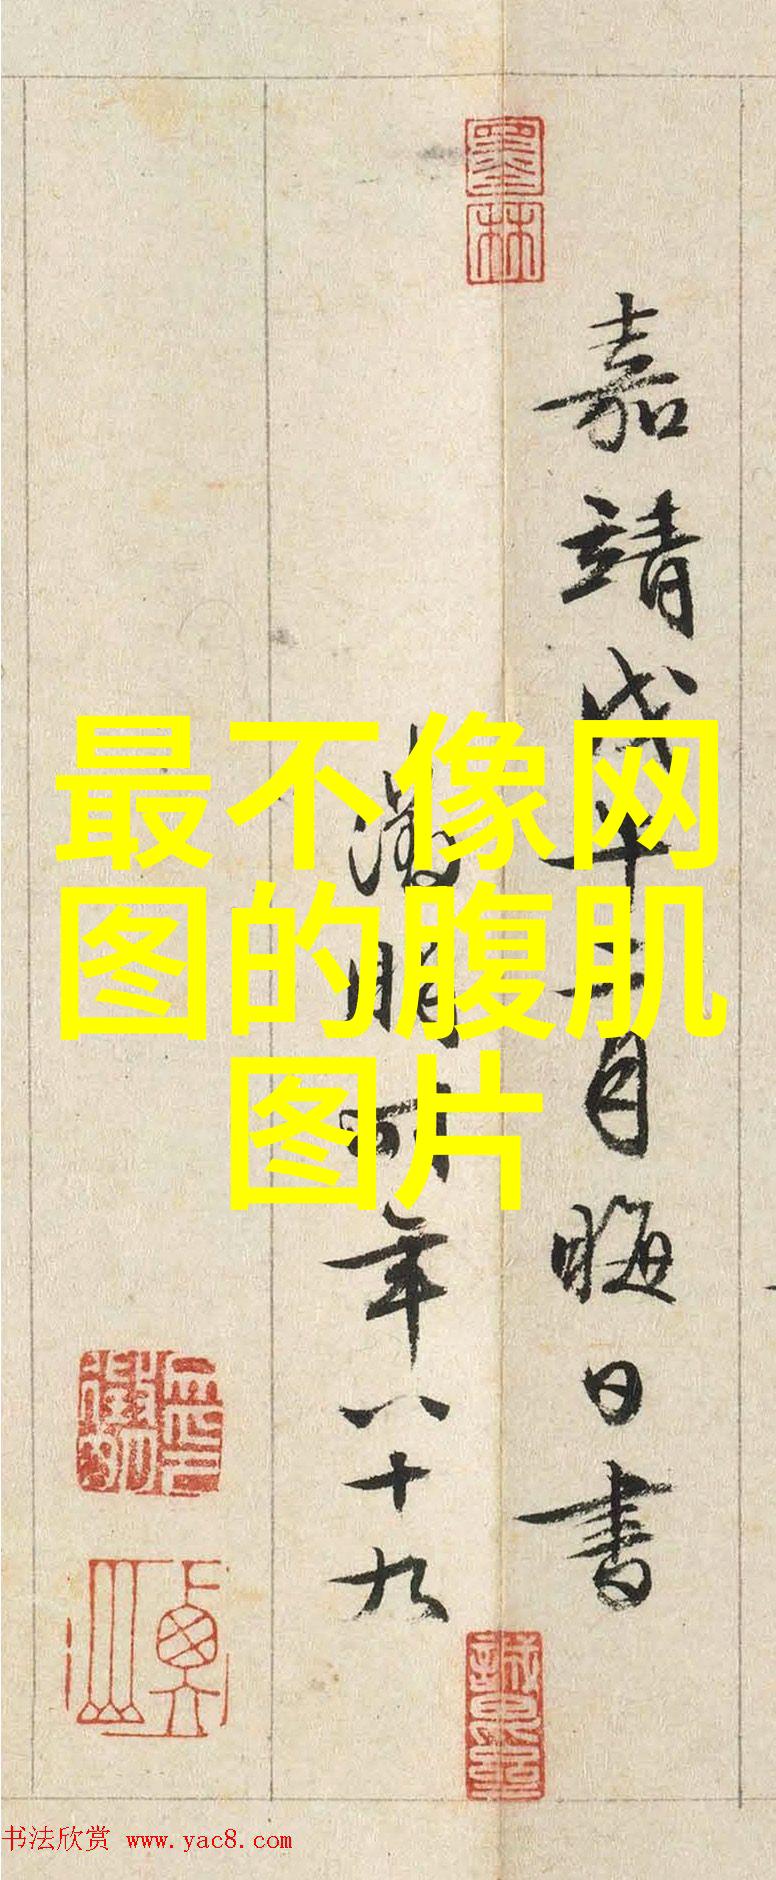 墨林
嘉靖戊午二月晦日書
徵明時年八十九
最不像网
图的腹肌
图片
书法欣赏 www.yac8.com